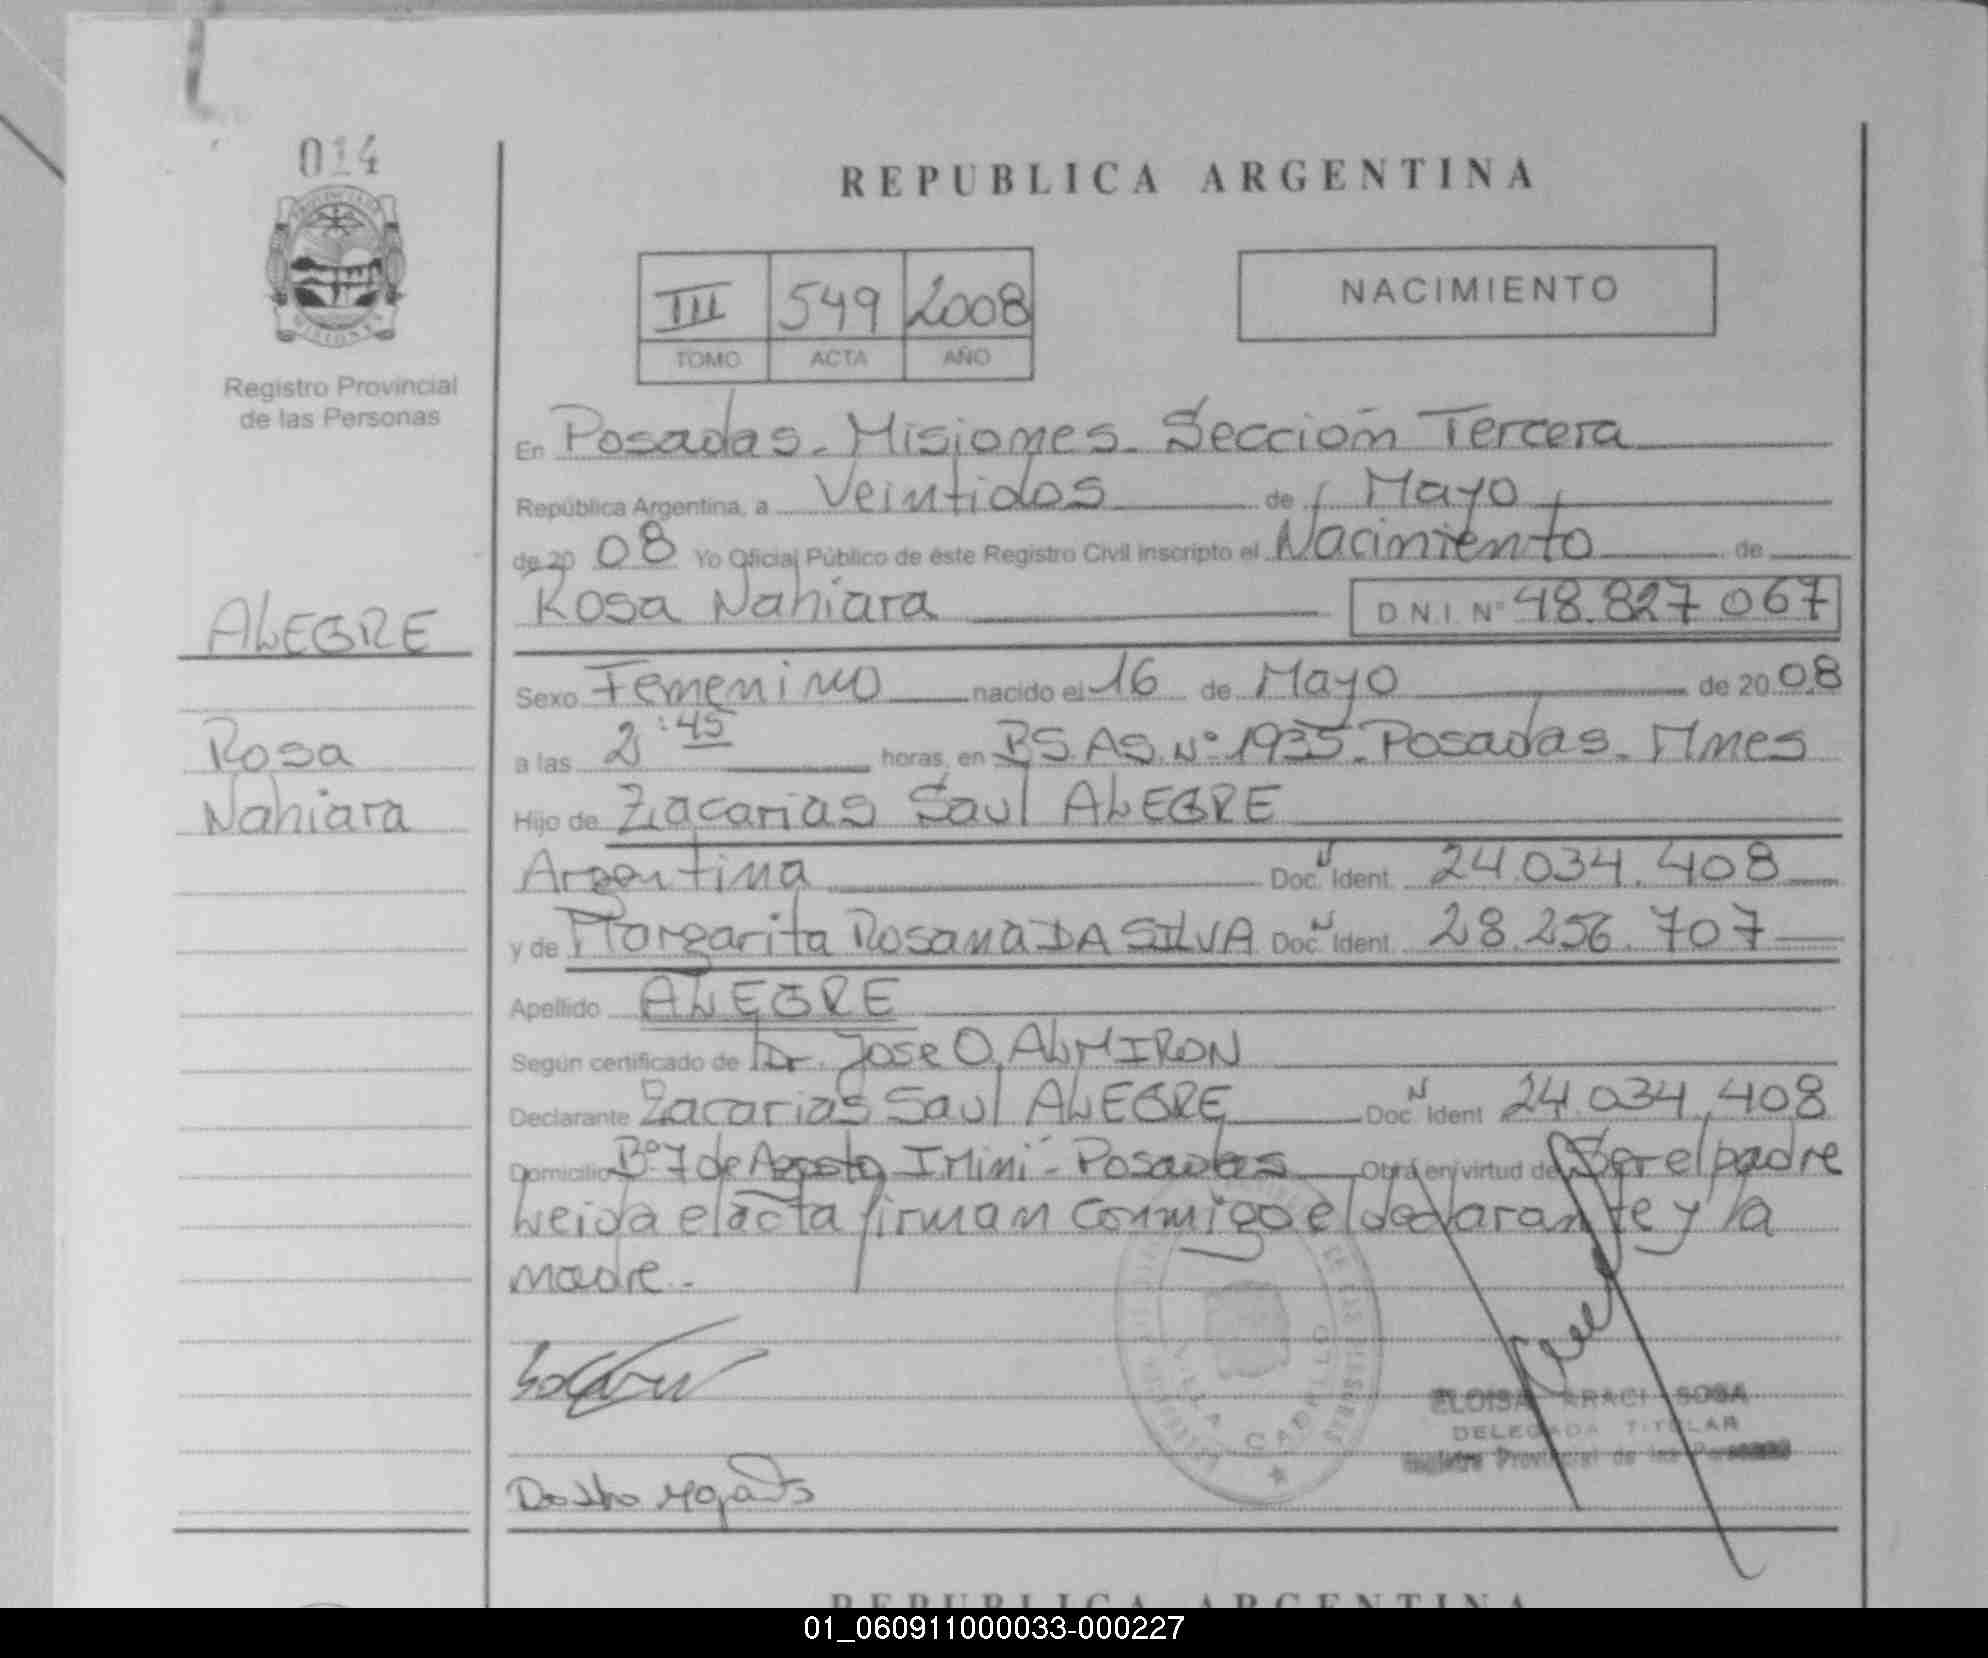 014
REPUBLICA ARGENTINA
III 549 2008
TOMO ACTA AÑO
NACIMIENTO
Registro Provincial
de las Personas
En Posadas - Misiones - Sección Tercera
República Argentina, a Veintidos de Mayo
de 20 08 Yo Oficial Público de éste Registro Civil inscripto el Nacimiento de
Rosa Nahiara D.N.I. Nº 48.827.067
ALEGRE
Sexo Femenino nacido el 16 de Mayo de 20 08
Rosa
a las 2:45 horas, en BS.AS. Nº 1935 - Posadas - Mnes
Nahiara
Hijo de Zacarias Saul ALEGRE
Argentina Doc. N Ident. 24.034.408
y de Margarita Rosana DA SILVA Doc. N Ident. 28.256.707
Apellido ALEGRE
Según certificado de Dr. Jose O. ALMIRON
Declarante Zacarias Saul ALEGRE Doc N Ident 24.034.408
Domicilio Bº 7 de Agosto I Miní - Posadas Obra en virtud de Ser el padre
Leida el acta firman conmigo el declarante y la
madre.-
VILLA CABELLO
ELOISA ARACI SOSA
DELEGADA TITULAR
Registro Provincial de las Personas
REPUBLICA ARGENTINA
01_060911000033-000227